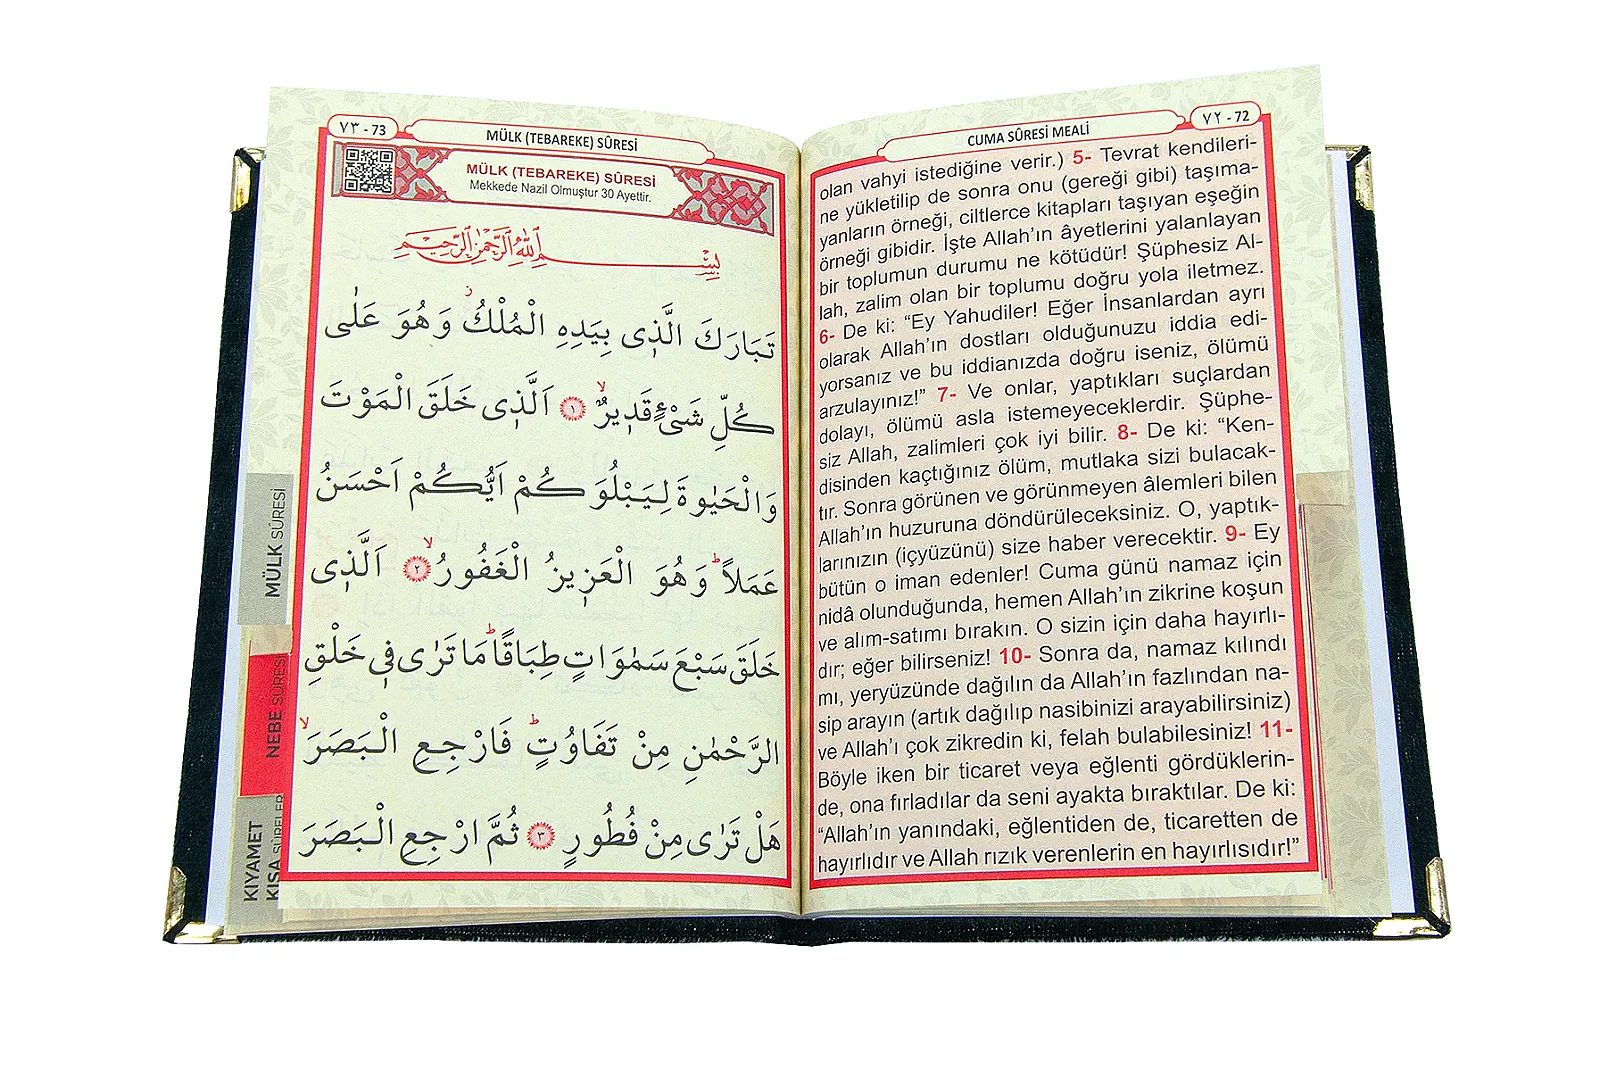 ٧٢ - 72
CUMA SÛRESİ MEALİ
olan vahyi istediğine verir.) 5- Tevrat kendileri-
ne yükletilip de sonra onu (gereği gibi) taşıma-
yanların örneği, ciltlerce kitapları taşıyan eşeğin
örneği gibidir. İşte Allah’ın âyetlerini yalanlayan
bir toplumun durumu ne kötüdür! Şüphesiz Al-
lah, zalim olan bir toplumu doğru yola iletmez.
6- De ki: “Ey Yahudiler! Eğer İnsanlardan ayrı
olarak Allah’ın dostları olduğunuzu iddia edi-
yorsanız ve bu iddianızda doğru iseniz, ölümü
arzulayınız!” 7- Ve onlar, yaptıkları suçlardan
dolayı, ölümü asla istemeyeceklerdir. Şüphe-
siz Allah, zalimleri çok iyi bilir. 8- De ki: “Ken-
disinden kaçtığınız ölüm, mutlaka sizi bulacak-
tır. Sonra görünen ve görünmeyen âlemleri bilen
Allah’ın huzuruna döndürüleceksiniz. O, yaptık-
larınızın (içyüzünü) size haber verecektir. 9- Ey
bütün o iman edenler! Cuma günü namaz için
nidâ olunduğunda, hemen Allah’ın zikrine koşun
ve alım-satımı bırakın. O sizin için daha hayırlı-
dır; eğer bilirseniz! 10- Sonra da, namaz kılındı
mı, yeryüzünde dağılın da Allah’ın fazlından na-
sip arayın (artık dağılıp nasibinizi arayabilirsiniz)
ve Allah’ı çok zikredin ki, felah bulabilesiniz! 11-
Böyle iken bir ticaret veya eğlenti gördüklerin-
de, ona fırladılar da seni ayakta bıraktılar. De ki:
“Allah’ın yanındaki, eğlentiden de, ticaretten de
hayırlıdır ve Allah rızık verenlerin en hayırlısıdır!”
٧٣ - 73
MÜLK (TEBAREKE) SÛRESİ
MÜLK (TEBAREKE) SÛRESİ
Mekkede Nazil Olmuştur 30 Ayettir.
بِسْمِ اللّٰهِ الرَّحْمٰنِ الرَّحٖيمِ
تَبَارَكَ الَّذٖى بِيَدِهِ الْمُلْكُ وَهُوَ عَلٰى
كُلِّ شَىْءٍ قَدٖيرٌۙ ﴿١﴾ اَلَّذٖى خَلَقَ الْمَوْتَ
وَالْحَيٰوةَ لِيَبْلُوَكُمْ اَيُّكُمْ اَحْسَنُ
عَمَلًاؕ وَهُوَ الْعَزٖيزُ الْغَفُورُۙ ﴿٢﴾ اَلَّذٖى
خَلَقَ سَبْعَ سَمٰوَاتٍ طِبَاقًاؕ مَا تَرٰى فٖى خَلْقِ
الرَّحْمٰنِ مِنْ تَفَاوُتٍؕ فَارْجِعِ الْبَصَرَۙ
هَلْ تَرٰى مِنْ فُطُورٍ ﴿٣﴾ ثُمَّ ارْجِعِ الْبَصَرَ
MÜLK SÛRESİ
NEBE SÛRESİ
KIYAMET
KISA SÛRELER